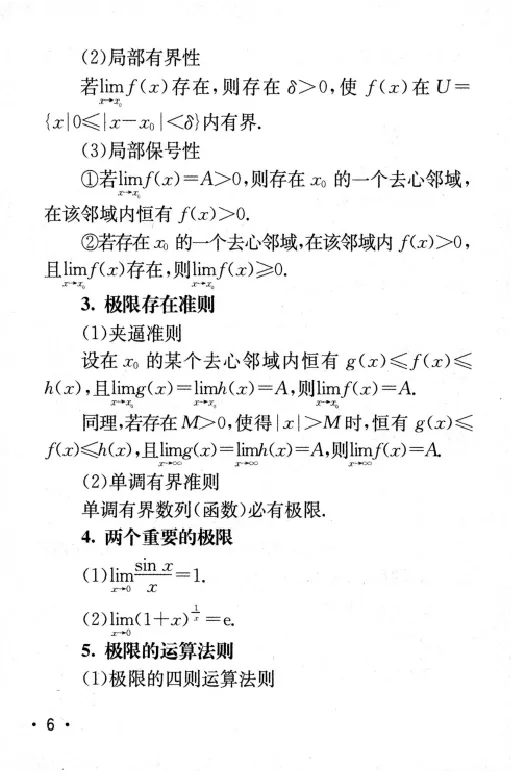 (2)局部有界性
若lim f(x)存在,则存在 δ>0,使 f(x)在 U=
x→x₀
{x|0≤|x-x₀|<δ}内有界.
(3)局部保号性
①若lim f(x)=A>0,则存在 x₀ 的一个去心邻域,
x→x₀
在该邻域内恒有 f(x)>0.
②若存在 x₀ 的一个去心邻域,在该邻域内 f(x)>0,
且lim f(x)存在,则lim f(x)≥0.
x→x₀ x→x₀
3. 极限存在准则
(1)夹逼准则
设在 x₀ 的某个去心邻域内恒有 g(x)≤f(x)≤
h(x),且lim g(x)=lim h(x)=A,则lim f(x)=A.
x→x₀ x→x₀ x→x₀
同理,若存在 M>0,使得|x|>M 时,恒有 g(x)≤
f(x)≤h(x),且lim g(x)=lim h(x)=A,则lim f(x)=A.
x→∞ x→∞ x→∞
(2)单调有界准则
单调有界数列(函数)必有极限.
4. 两个重要的极限
(1)lim sin x/x=1.
x→0
(2)lim(1+x)^(1/x)=e.
x→0
5. 极限的运算法则
(1)极限的四则运算法则
· 6 ·